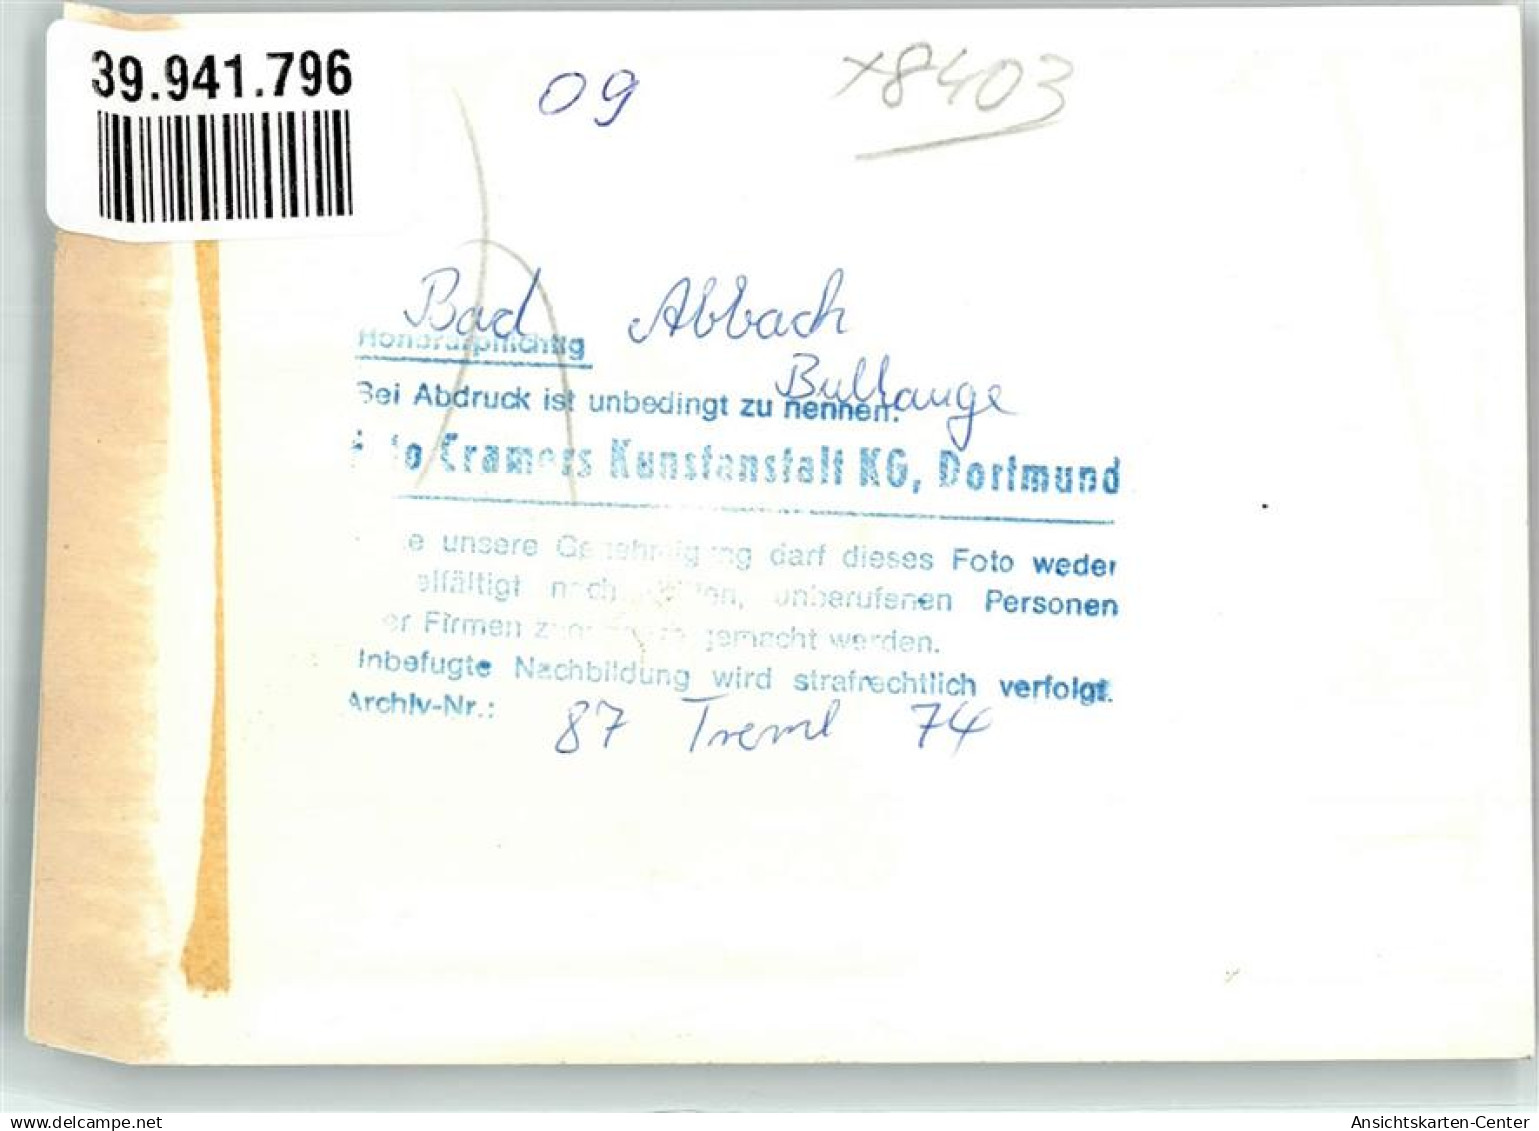 39.941.796
09
x8403
Bad Abbach
Honorarpflichtig
Bullauge
Bei Abdruck ist unbedingt zu nennen:
Cramers Kunstanstalt KG, Dortmund
e unsere Genehmigung darf dieses Foto weder
elfältigt noch unberufenen Personen
er Firmen gemacht werden.
Inbefugte Nachbildung wird strafrechtlich verfolgt.
Archiv-Nr.: 87 Treml 74
www.delcampe.net
Ansichtskarten-Center